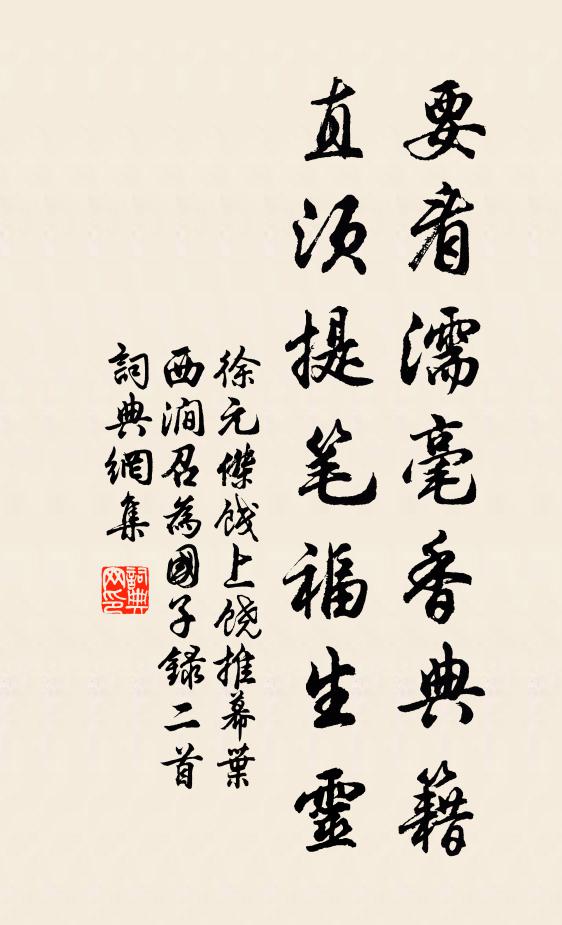 要看濡毫香典籍
直须提笔福生靈
徐元傑餞上饒推幕葉
西澗召為國子録二首
詞典網集
詞典
网印